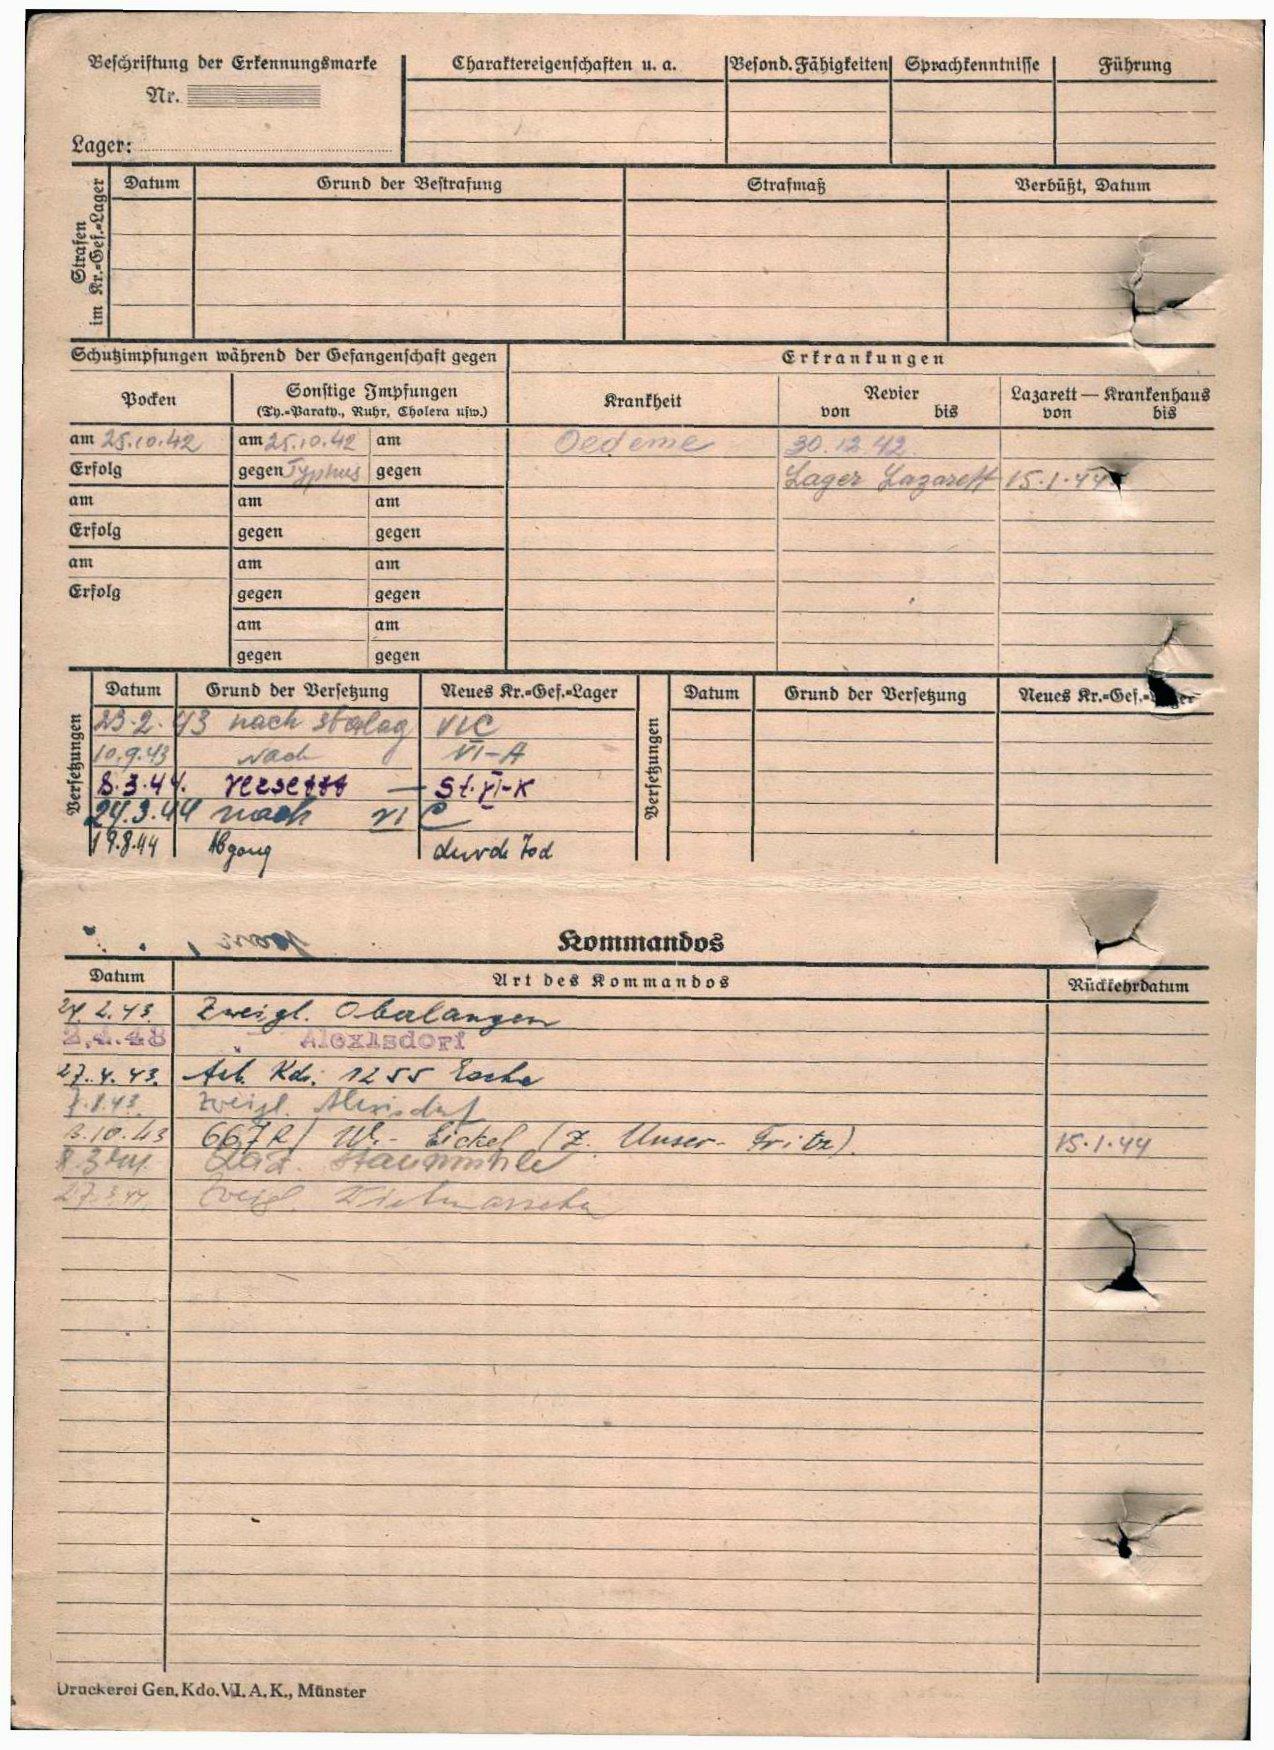 Beschriftung der Erkennungsmarke
Nr.
Lager:
Charaktereigenschaften u. a.
Besond. Fähigkeiten
Sprachkenntnisse
Führung
Strafen im Kr.=Gef.=Lager
Datum
Grund der Bestrafung
Strafmaß
Verbüßt, Datum
Schutzimpfungen während der Gefangenschaft gegen
Erkrankungen
Pocken
Sonstige Impfungen
(Ty.=Paraty., Ruhr, Cholera usw.)
Krankheit
Revier
von bis
Lazarett — Krankenhaus
von bis
am 25.10.42 am 25.10.42 am Oedeme 30.12.42.
Erfolg gegen Typhus gegen Lager Lazarett 15.1.44
am am am
Erfolg gegen gegen
am am am
Erfolg gegen gegen
am am
gegen gegen
Versetzungen
Datum Grund der Versetzung Neues Kr.=Gef.=Lager
23.2.43 nach Stalag VIC
10.9.43 nach VI-A
8.3.44. versetzt — St. VI-K
24.3.44 nach VI C
19.8.44 Abgang durch Tod
Versetzungen
Datum Grund der Versetzung Neues Kr.=Gef.=Lager
Kommandos
Datum Art des Kommandos Rückkehrdatum
24.2.43. Zweigl. Oberlangen
2.4.43 Alexisdorf
27.4.43. Arb. Kdo. 1255 Esche
7.8.43. Zweigl. Alexisdorf
3.10.43 667 R / W.- Eickel (Z. Unser- Fritz). 15.1.44
8.3.44. Laz. Staumühle
27.3.44. Zweigl.
Druckerei Gen. Kdo. VI. A. K., Münster